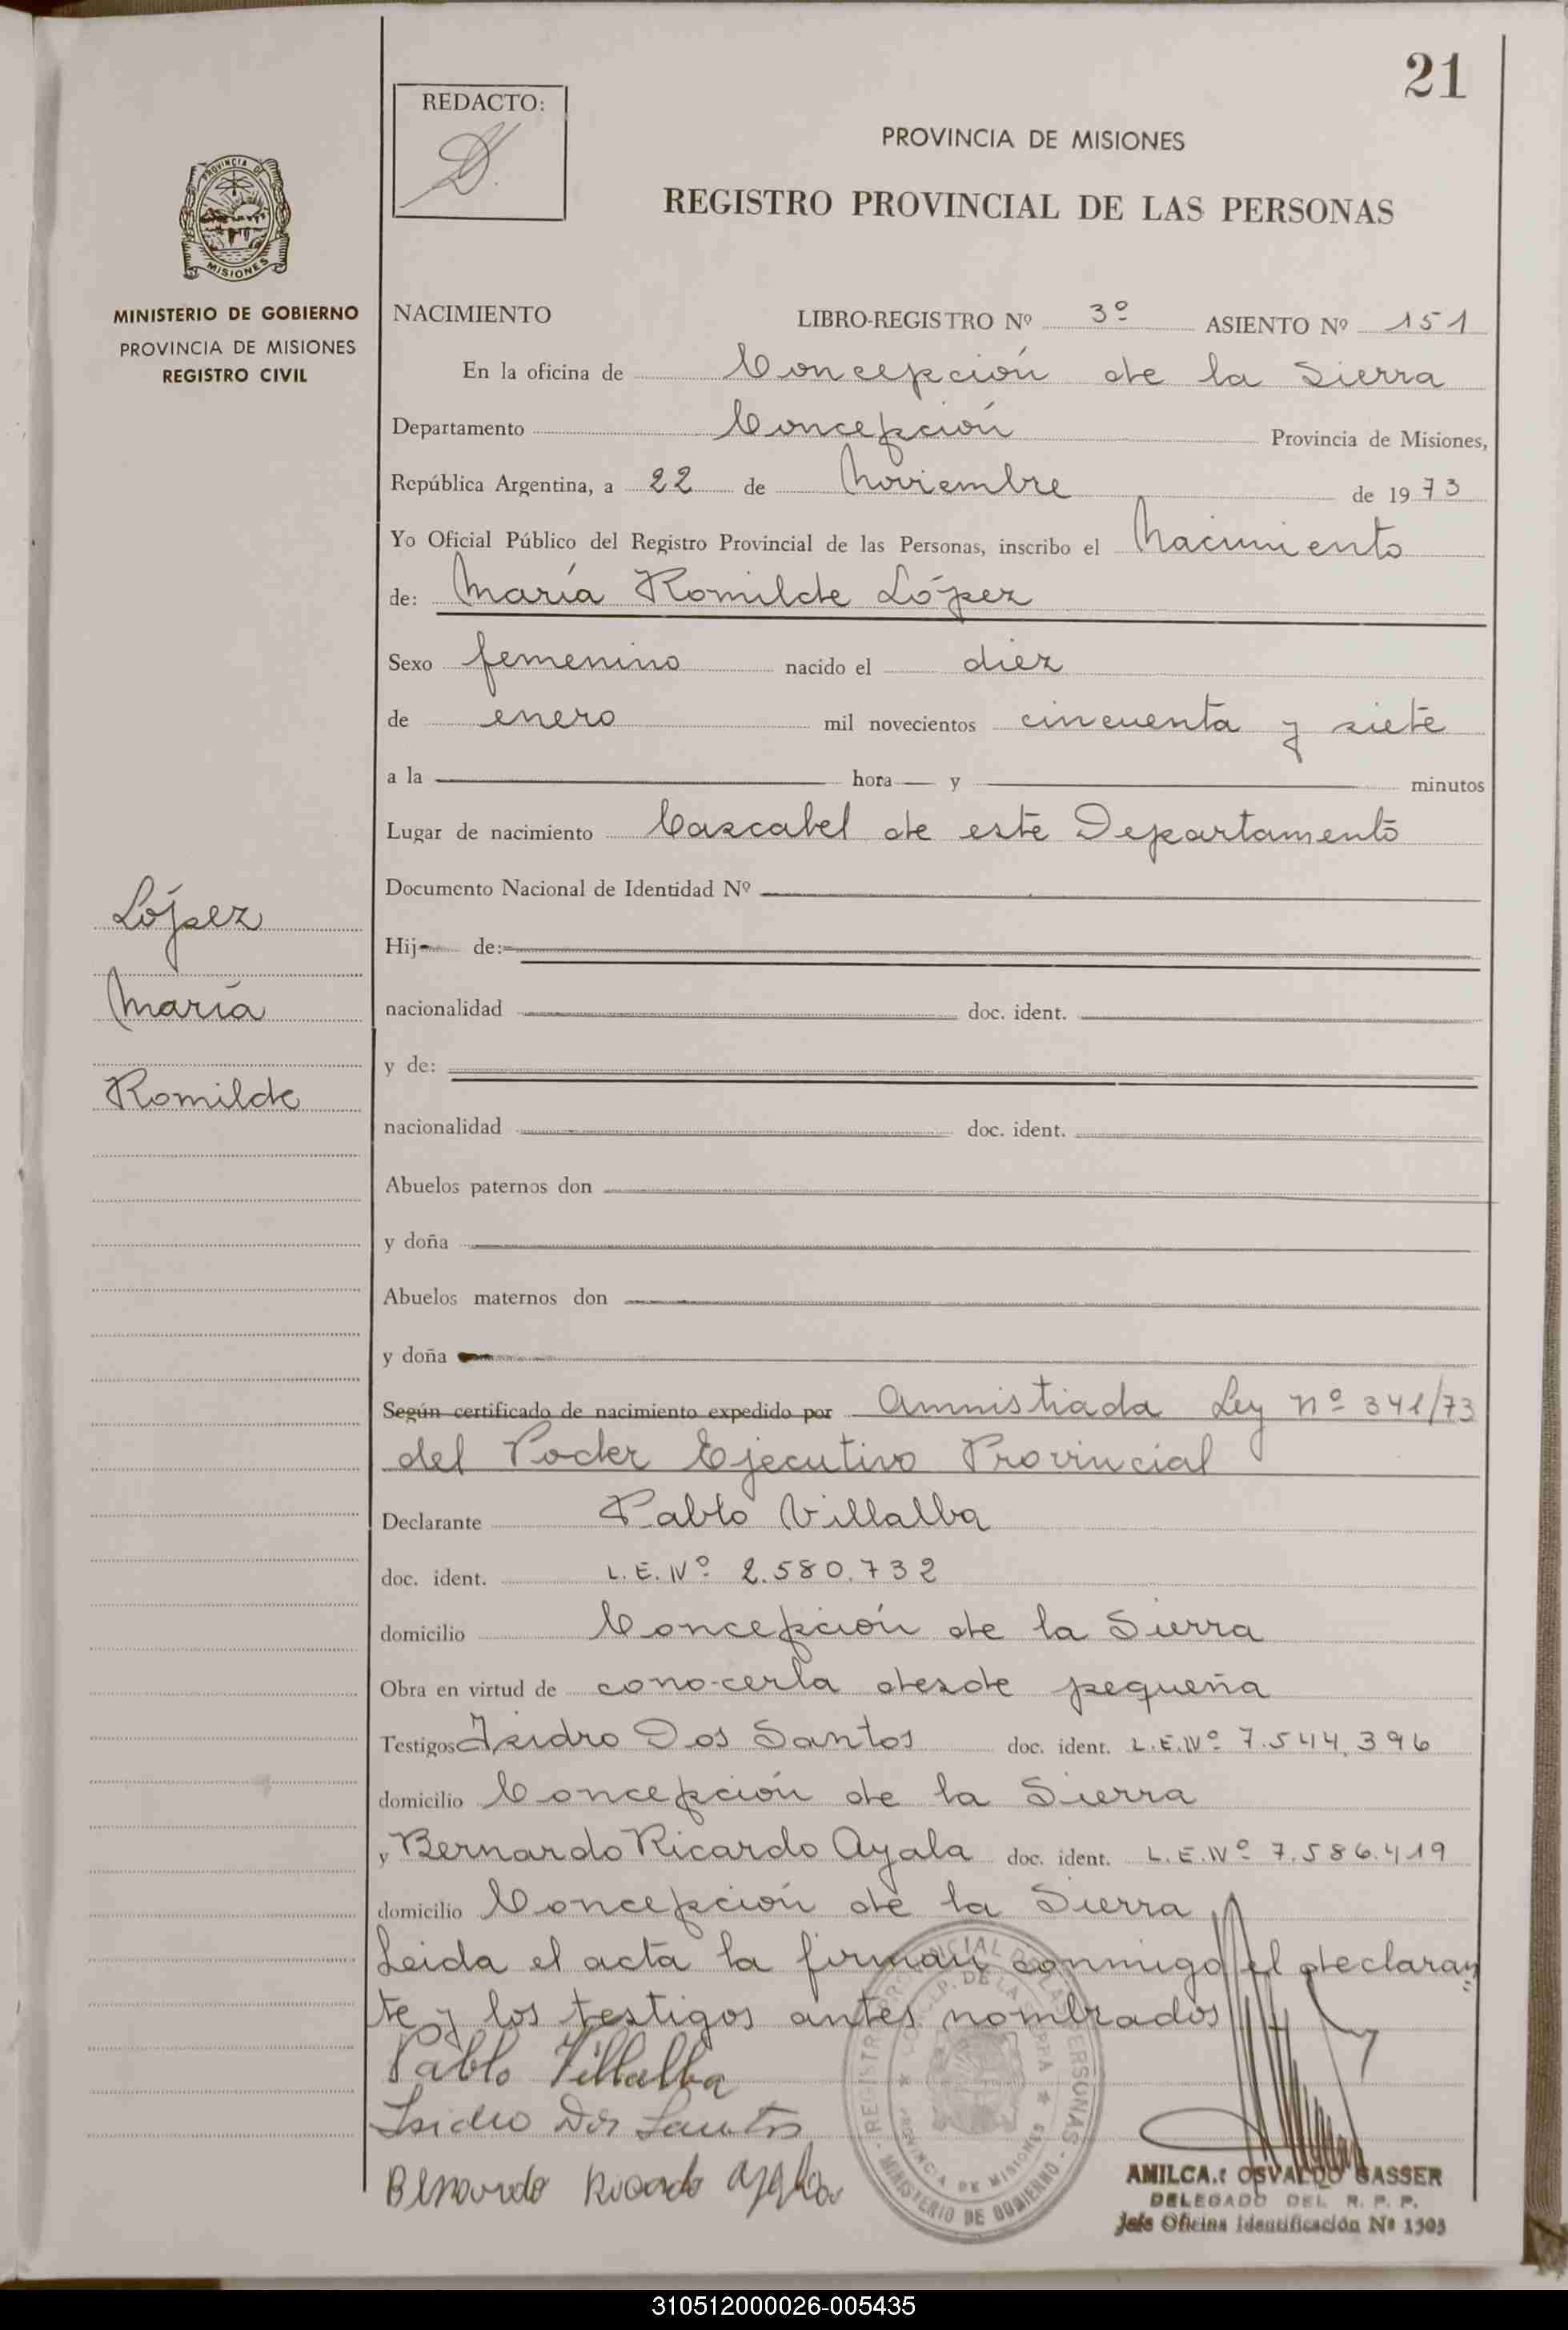 21
REDACTO:
PROVINCIA DE MISIONES
REGISTRO PROVINCIAL DE LAS PERSONAS
PROVINCIA DE
MISIONES
MINISTERIO DE GOBIERNO
PROVINCIA DE MISIONES
REGISTRO CIVIL
NACIMIENTO LIBRO-REGISTRO Nº 3º ASIENTO Nº 151
En la oficina de Concepción de la Sierra
Departamento Concepción Provincia de Misiones,
República Argentina, a 22 de Noviembre de 1973
Yo Oficial Público del Registro Provincial de las Personas, inscribo el Nacimiento
de: María Romilde López
Sexo femenino nacido el diez
de enero mil novecientos cincuenta y siete
a la hora y minutos
Lugar de nacimiento Cascabel de este Departamento
Documento Nacional de Identidad Nº
López
María
Romilde
Hij de:
nacionalidad doc. ident.
y de:
nacionalidad doc. ident.
Abuelos paternos don
y doña
Abuelos maternos don
y doña
Según certificado de nacimiento expedido por Amnistiada Ley nº 341/73
del Poder Ejecutivo Provincial
Declarante Pablo Villalba
doc. ident. L.E.Nº 2.580.732
domicilio Concepción de la Sierra
Obra en virtud de cono-cerla desde pequeña
Testigos Isidro Dos Santos doc. ident. L.E.Nº 7.544.396
domicilio Concepción de la Sierra
y Bernardo Ricardo Ayala doc. ident. L.E.Nº 7.586.419
domicilio Concepción de la Sierra
Leida el acta la firman conmigo el declaran
te y los testigos antes nombrados
Pablo Villalba
Isidro Dos Santos
Bernardo Ricardo Ayala
REGISTRO PROVINCIAL DE LAS PERSONAS
MINISTERIO DE GOBIERNO
CONCEP. DE LA SIERRA
PROVINCIA DE MISIONES
AMILCAR OSVALDO GASSER
DELEGADO DEL R. P. P.
Jefe Oficina Identificación Nº 1303
310512000026-005435